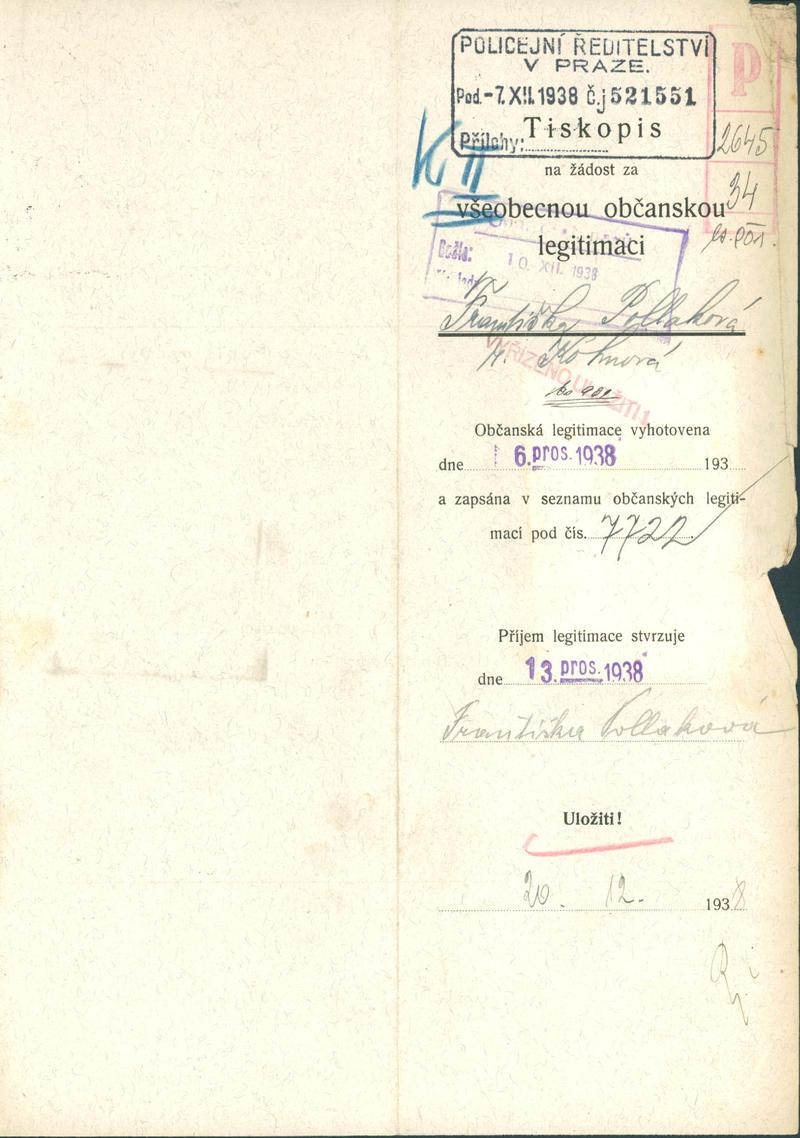 POLICEJNÍ ŘEDITELSTVÍ
V PRAZE.
Pod. -7.XII.1938 č.j 521551
Přílohy:
P
2645
34
K II
Tiskopis
na žádost za
všeobecnou občanskou
legitimaci
Došlo:
10. XII. 1938
Františka Pollaková
r. Kohnová
VYŘÍZENO ULOŽITI!
Občanská legitimace vyhotovena
dne 6. pros. 1938 193
a zapsána v seznamu občanských legiti-
mací pod čís. 7722
Příjem legitimace stvrzuje
dne 13. pros. 1938
Františka Pollaková
Uložiti!
20. 12. 1938